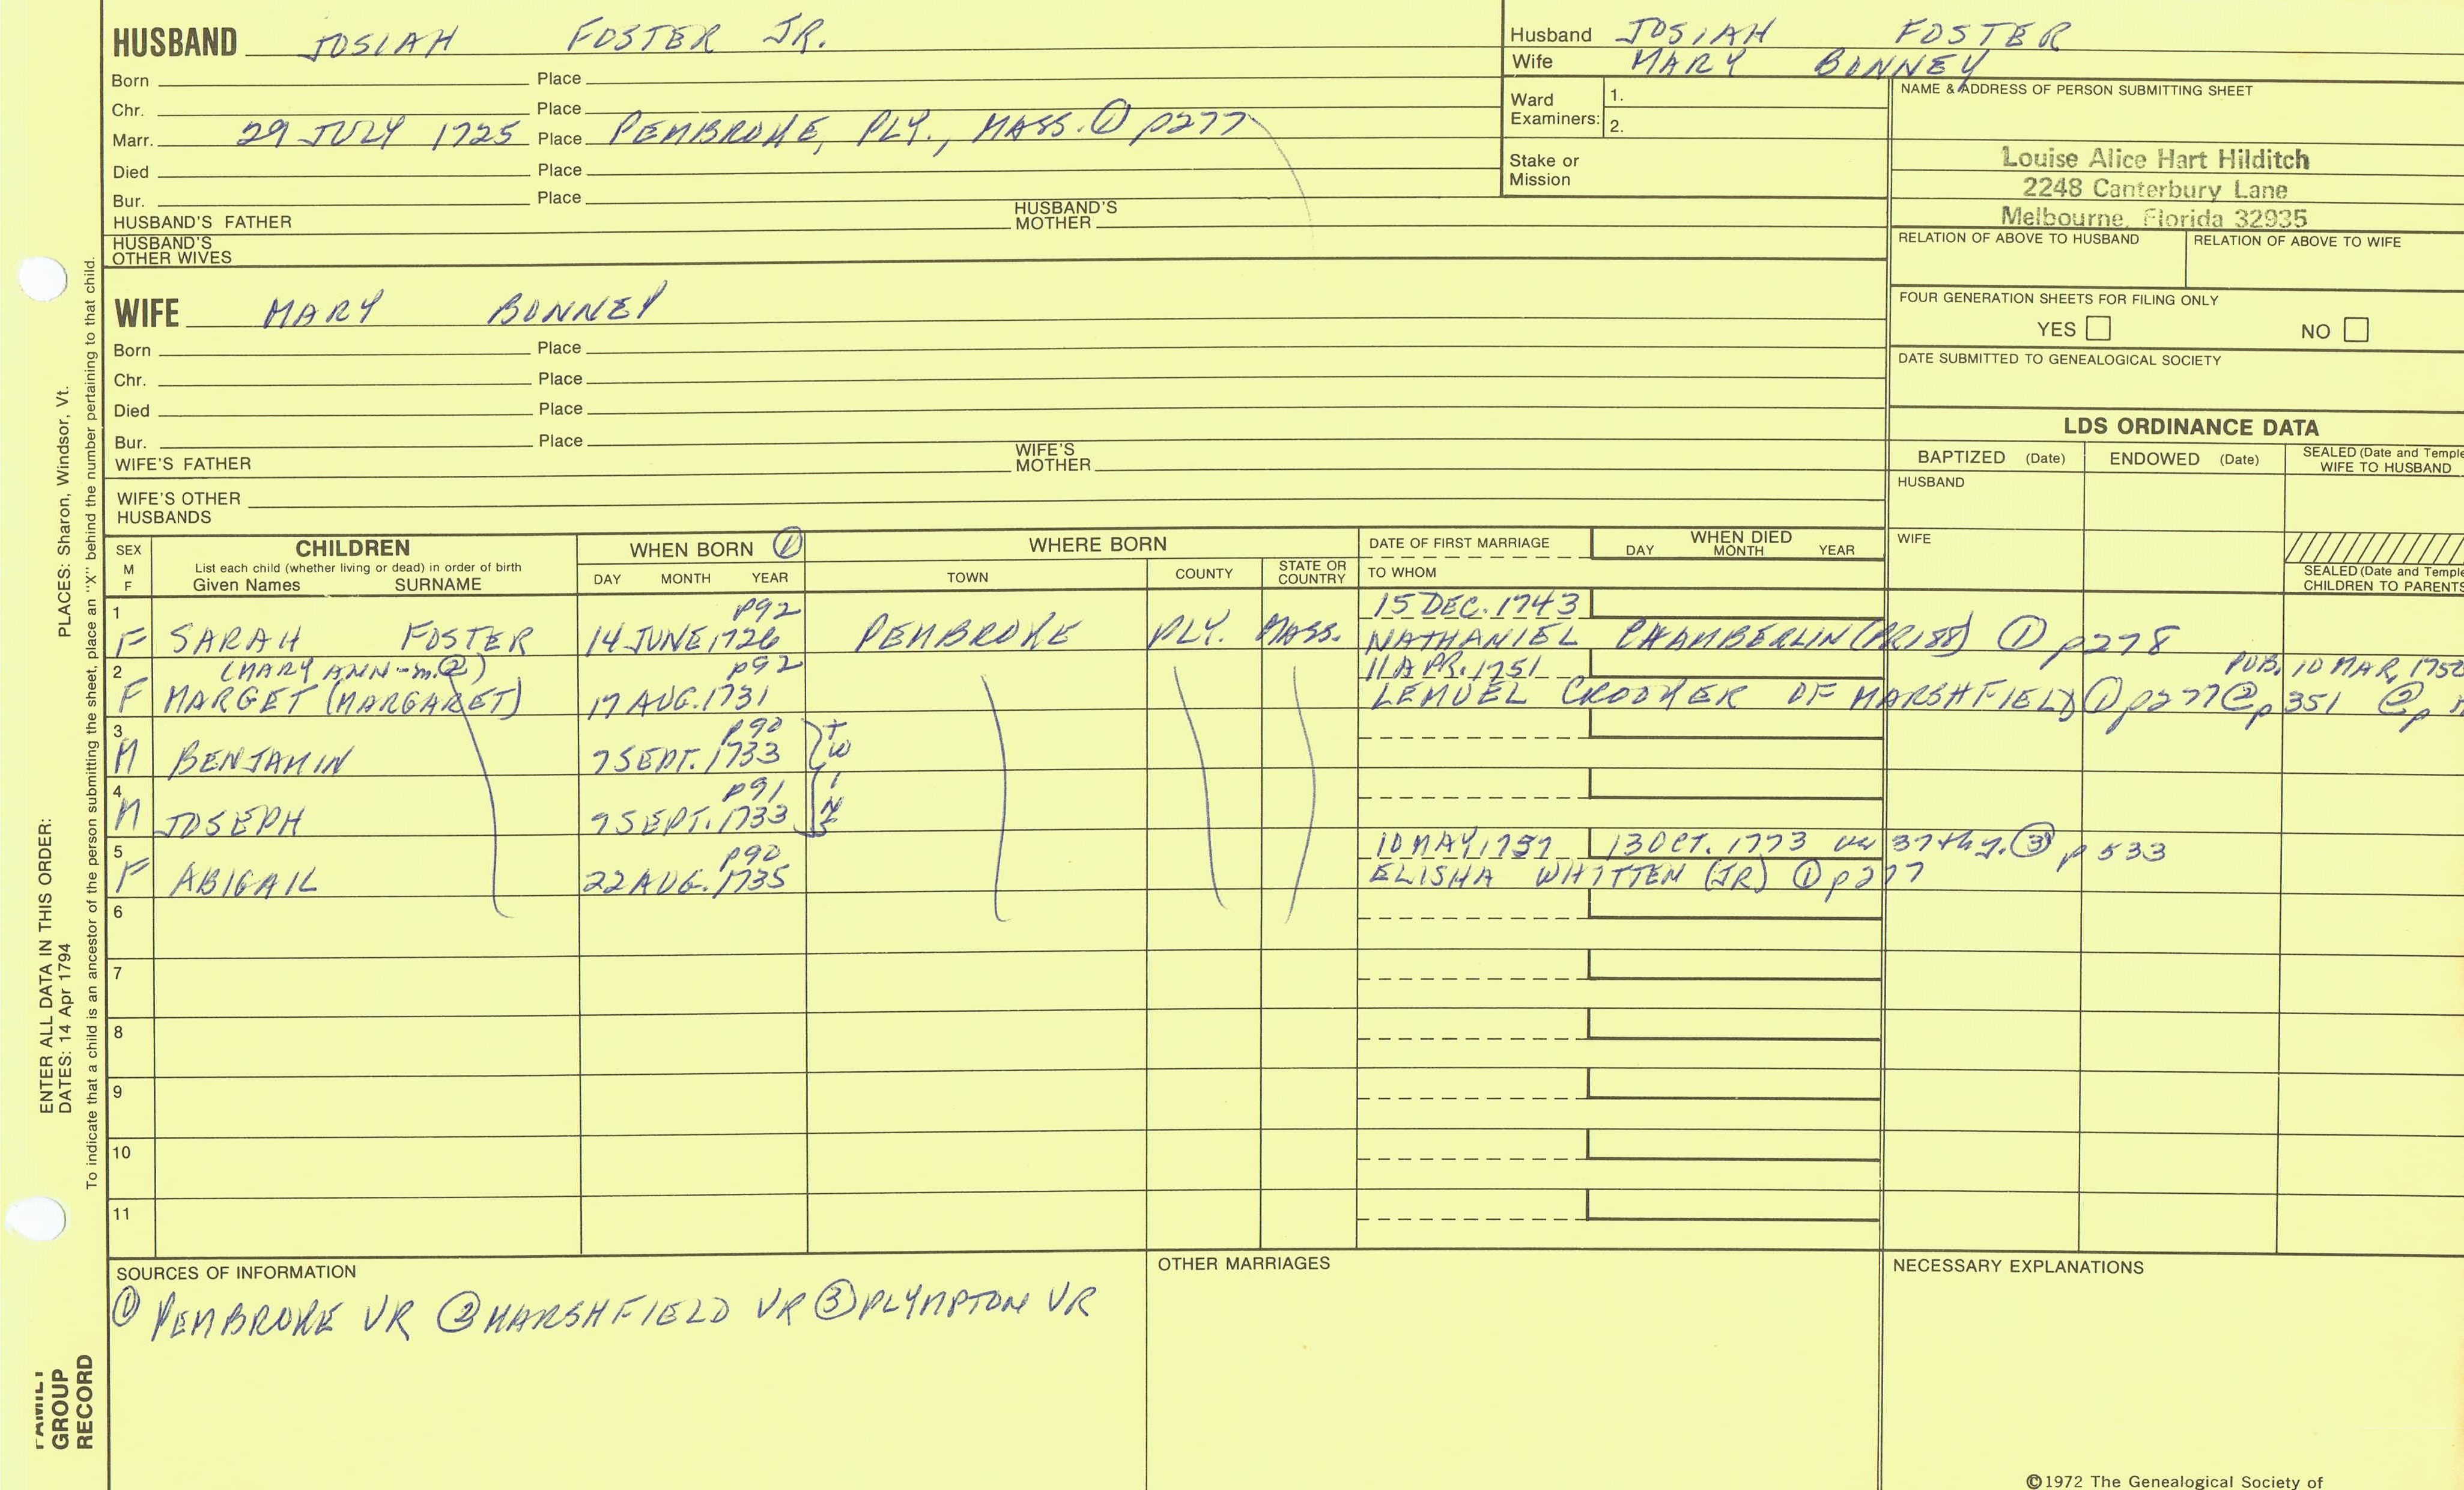 HUSBAND JOSIAH FOSTER JR.
Born Place
Chr. Place
Marr. 29 JULY 1725 Place PEMBROKE, PLY., MASS. ① p277
Died Place
Bur. Place
HUSBAND'S FATHER HUSBAND'S MOTHER
HUSBAND'S OTHER WIVES
Husband JOSIAH FOSTER
Wife MARY BONNEY
Ward Examiners: 1.
2.
Stake or Mission
NAME & ADDRESS OF PERSON SUBMITTING SHEET
Louise Alice Hart Hilditch
2248 Canterbury Lane
Melbourne, Florida 32935
RELATION OF ABOVE TO HUSBAND RELATION OF ABOVE TO WIFE
FOUR GENERATION SHEETS FOR FILING ONLY
YES NO
DATE SUBMITTED TO GENEALOGICAL SOCIETY
WIFE MARY BONNEY
Born Place
Chr. Place
Died Place
Bur. Place
WIFE'S FATHER WIFE'S MOTHER
WIFE'S OTHER HUSBANDS
LDS ORDINANCE DATA
BAPTIZED (Date) ENDOWED (Date) SEALED (Date and Temple
WIFE TO HUSBAND
HUSBAND
WIFE
SEALED (Date and Temple
CHILDREN TO PARENTS
SEX M F CHILDREN WHEN BORN ① WHERE BORN DATE OF FIRST MARRIAGE WHEN DIED
List each child (whether living or dead) in order of birth
Given Names SURNAME DAY MONTH YEAR TOWN COUNTY STATE OR COUNTRY TO WHOM DAY MONTH YEAR
1 p92 15 DEC. 1743
F SARAH FOSTER 14 JUNE 1726 PEMBROKE PLY. MASS. NATHANIEL CHAMBERLIN ① p278
2 (MARY ANN - m.②) p92 11 APR. 1751 PUB. 10 MAR, 1750
F MARGET (MARGARET) 17 AUG. 1731 LEMUEL CROOKER OF MARSHFIELD ① p277 ② p351 ② p
3 p90
M BENJAMIN 7 SEPT. 1733 TWINS
4 p91
M JOSEPH 7 SEPT. 1733
5 p90 10 MAY 1757 13 OCT. 1773 in 37th y. ③ p533
F ABIGAIL 22 AUG. 1735 ELISHA WHITTEN (JR) ① p277
6
7
8
9
10
11
SOURCES OF INFORMATION OTHER MARRIAGES NECESSARY EXPLANATIONS
① PEMBROKE VR ② MARSHFIELD VR ③ PLYMPTON VR
©1972 The Genealogical Society of
PLACES: Sharon, Windsor, Vt.
ENTER ALL DATA IN THIS ORDER:
DATES: 14 Apr 1794
To indicate that a child is an ancestor of the person submitting the sheet, place an "X" behind the number pertaining to that child.
FAMILY
GROUP
RECORD